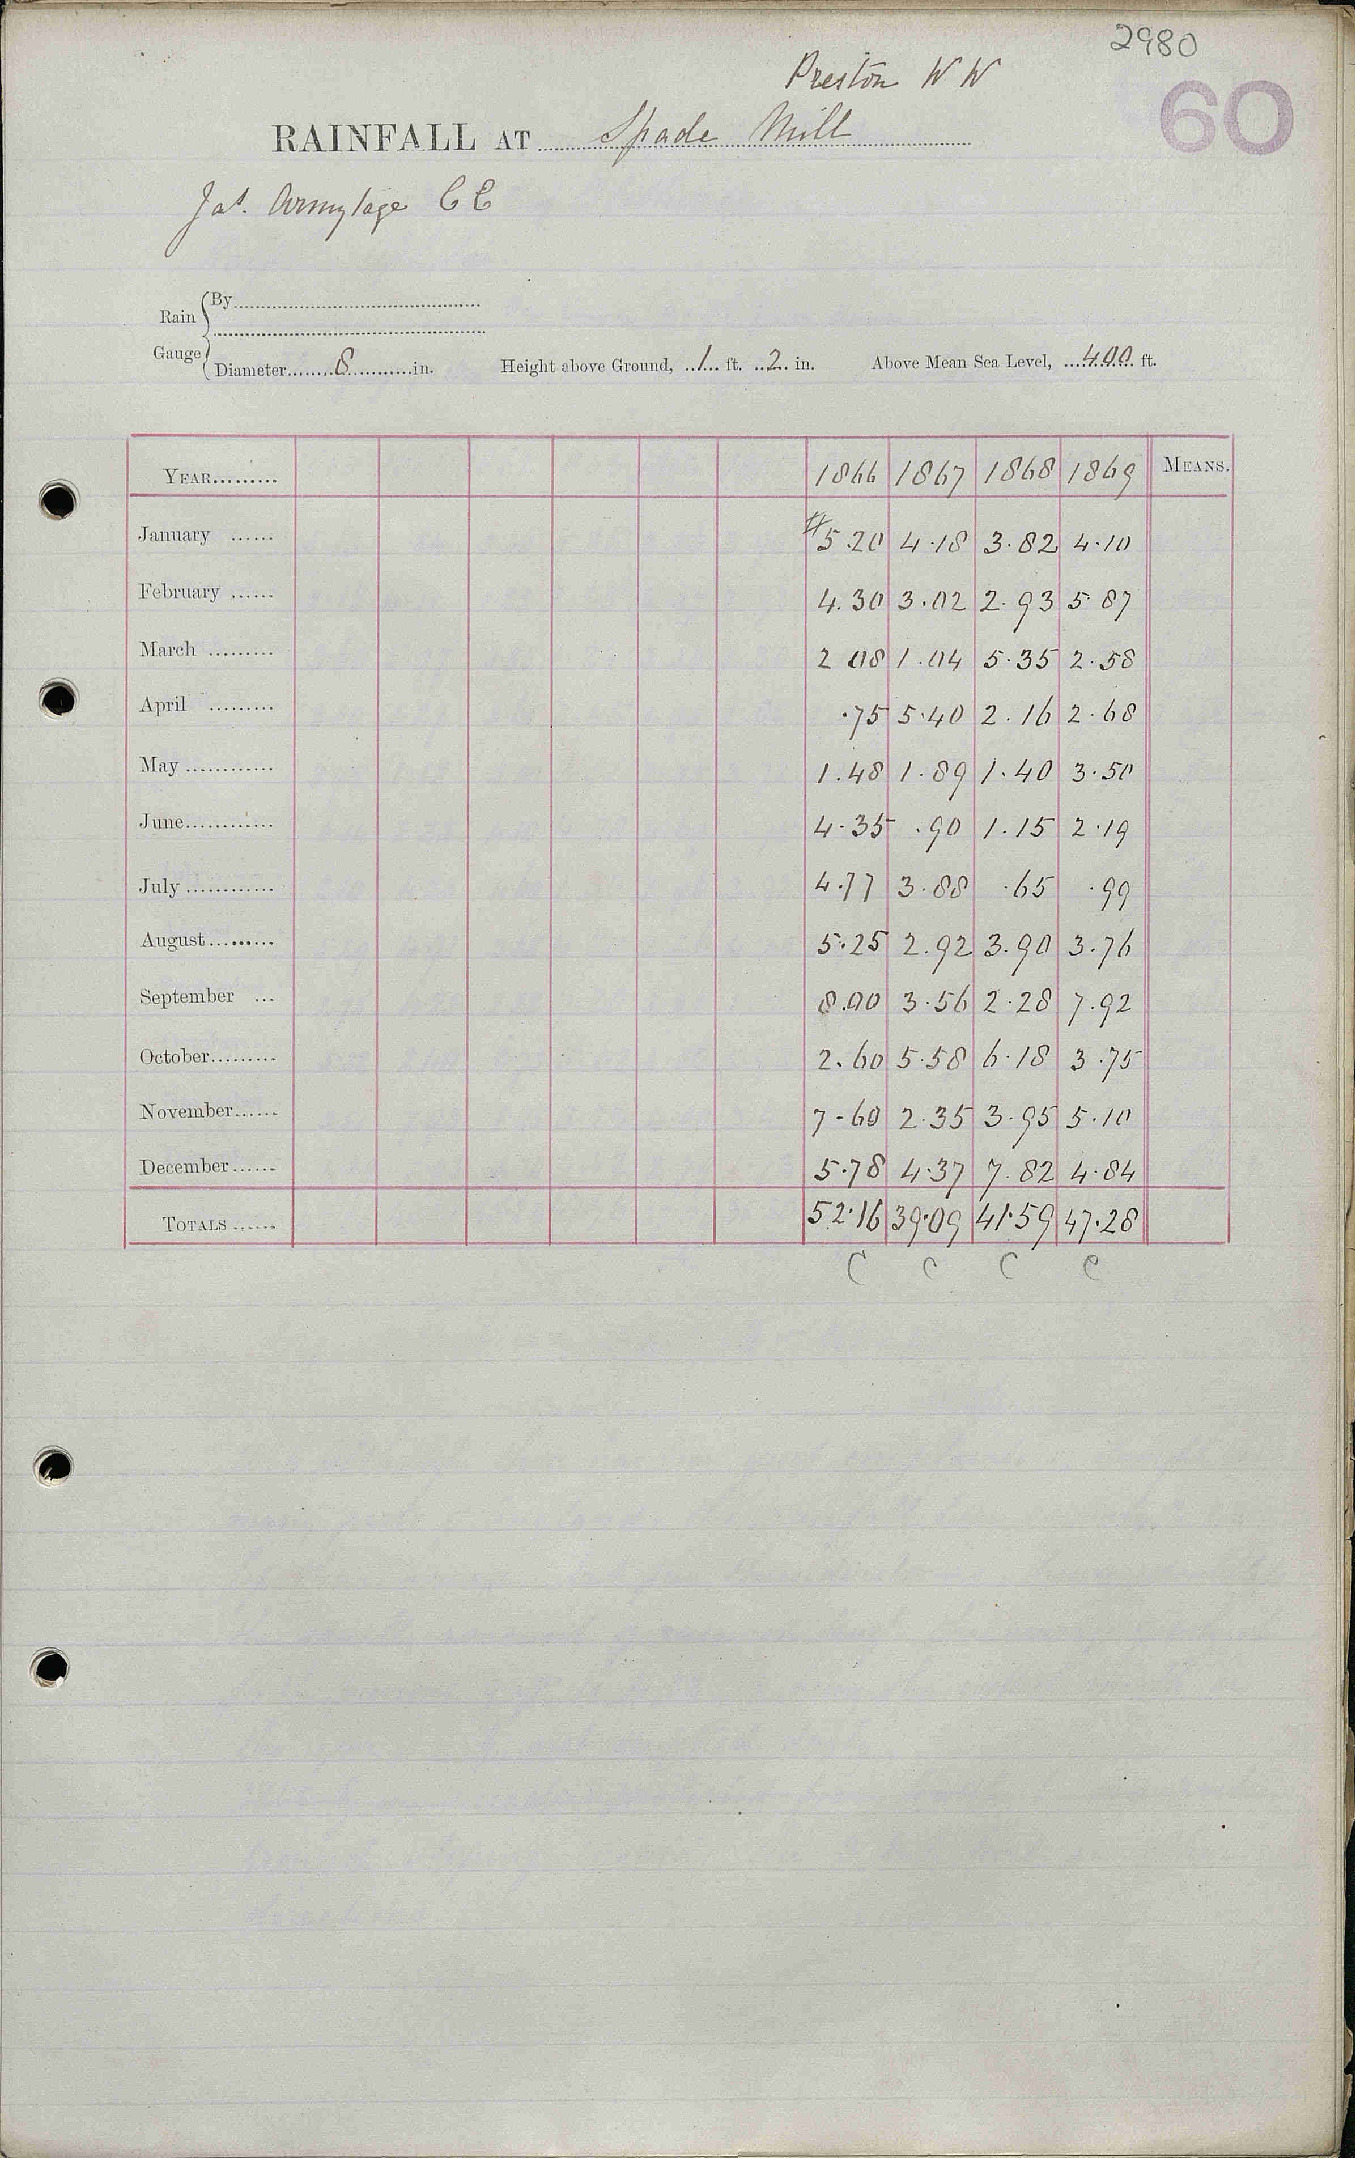 2980
Preston W W
60
RAINFALL AT Spade Mill
Jas. Armytage C E
Rain Gauge { By
Diameter 8 in. Height above Ground, 1 ft. 2 in. Above Mean Sea Level, 400 ft.
YEAR 1866 1867 1868 1869 MEANS.
January #5.20 4.18 3.82 4.10
February 4.30 3.02 2.93 5.87
March 2 08 1.04 5.35 2.58
April .75 5.40 2.16 2.68
May 1.48 1.89 1.40 3.50
June 4.35 .90 1.15 2.19
July 4.77 3.88 .65 .99
August 5.25 2.92 3.90 3.76
September 8.00 3.56 2.28 7.92
October 2.60 5.58 6.18 3.75
November 7-60 2.35 3.95 5.10
December 5.78 4.37 7.82 4.84
TOTALS 52.16 39.09 41.59 47.28
C C C C